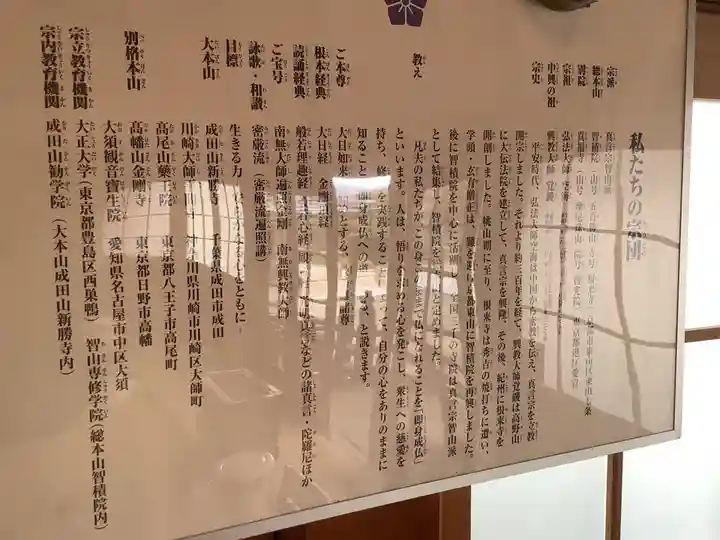 私たちの宗団
宗派 真言宗智山派
総本山 智積院
別院 真福寺
宗祖 弘法大師 空海
中興の祖 興教大師 覚鑁
宗史 平安時代、弘法大師空海は中国から密教を伝え、真言宗を立教
開宗しました。それより約三百年を経て、興教大師覚鑁は高野山
に大伝法院を建立して、真言宗を興隆、その後、紀州に根来寺を
開創しました。桃山期に至り、根来寺は秀吉の焼打ちに遭い、
学頭・玄宥僧正は、難を 東山に智積院を再興しました。
後に智積院を中心に 全国三千の寺院は真言宗智山派
として結集し、智積院を と定めました。
教え 凡夫の私たちが、この身このままで仏になれることを「即身成仏」
といいます。人は、悟りを求める心を発こし、衆生への慈愛を
持ち、修行を実践すること よって、自分の心をありのままに
知ること 即身成仏への と説きます。
ご本尊 大日如来 とする、 諸尊
根本経典 大日経 金剛頂経
読誦経典 般若理趣経 などの諸真言・陀羅尼ほか
ご宝号 南無大師遍照金剛 南無興教大師
詠歌・和讃 密厳流(密厳流遍照講)
目標 生きる力 とともに
大本山 成田山新勝寺 千葉県成田市成田
川崎大師 神奈川県川崎市川崎区大師町
高尾山薬王院 東京都八王子市高尾町
別格本山 高幡山金剛寺 東京都日野市高幡
大須観音寶生院 愛知県名古屋市中区大須
宗立教育機関 大正大学(東京都豊島区西巣鴨) 智山専修学院(総本山智積院内)
宗内教育機関 成田山勧学院(大本山成田山新勝寺内)